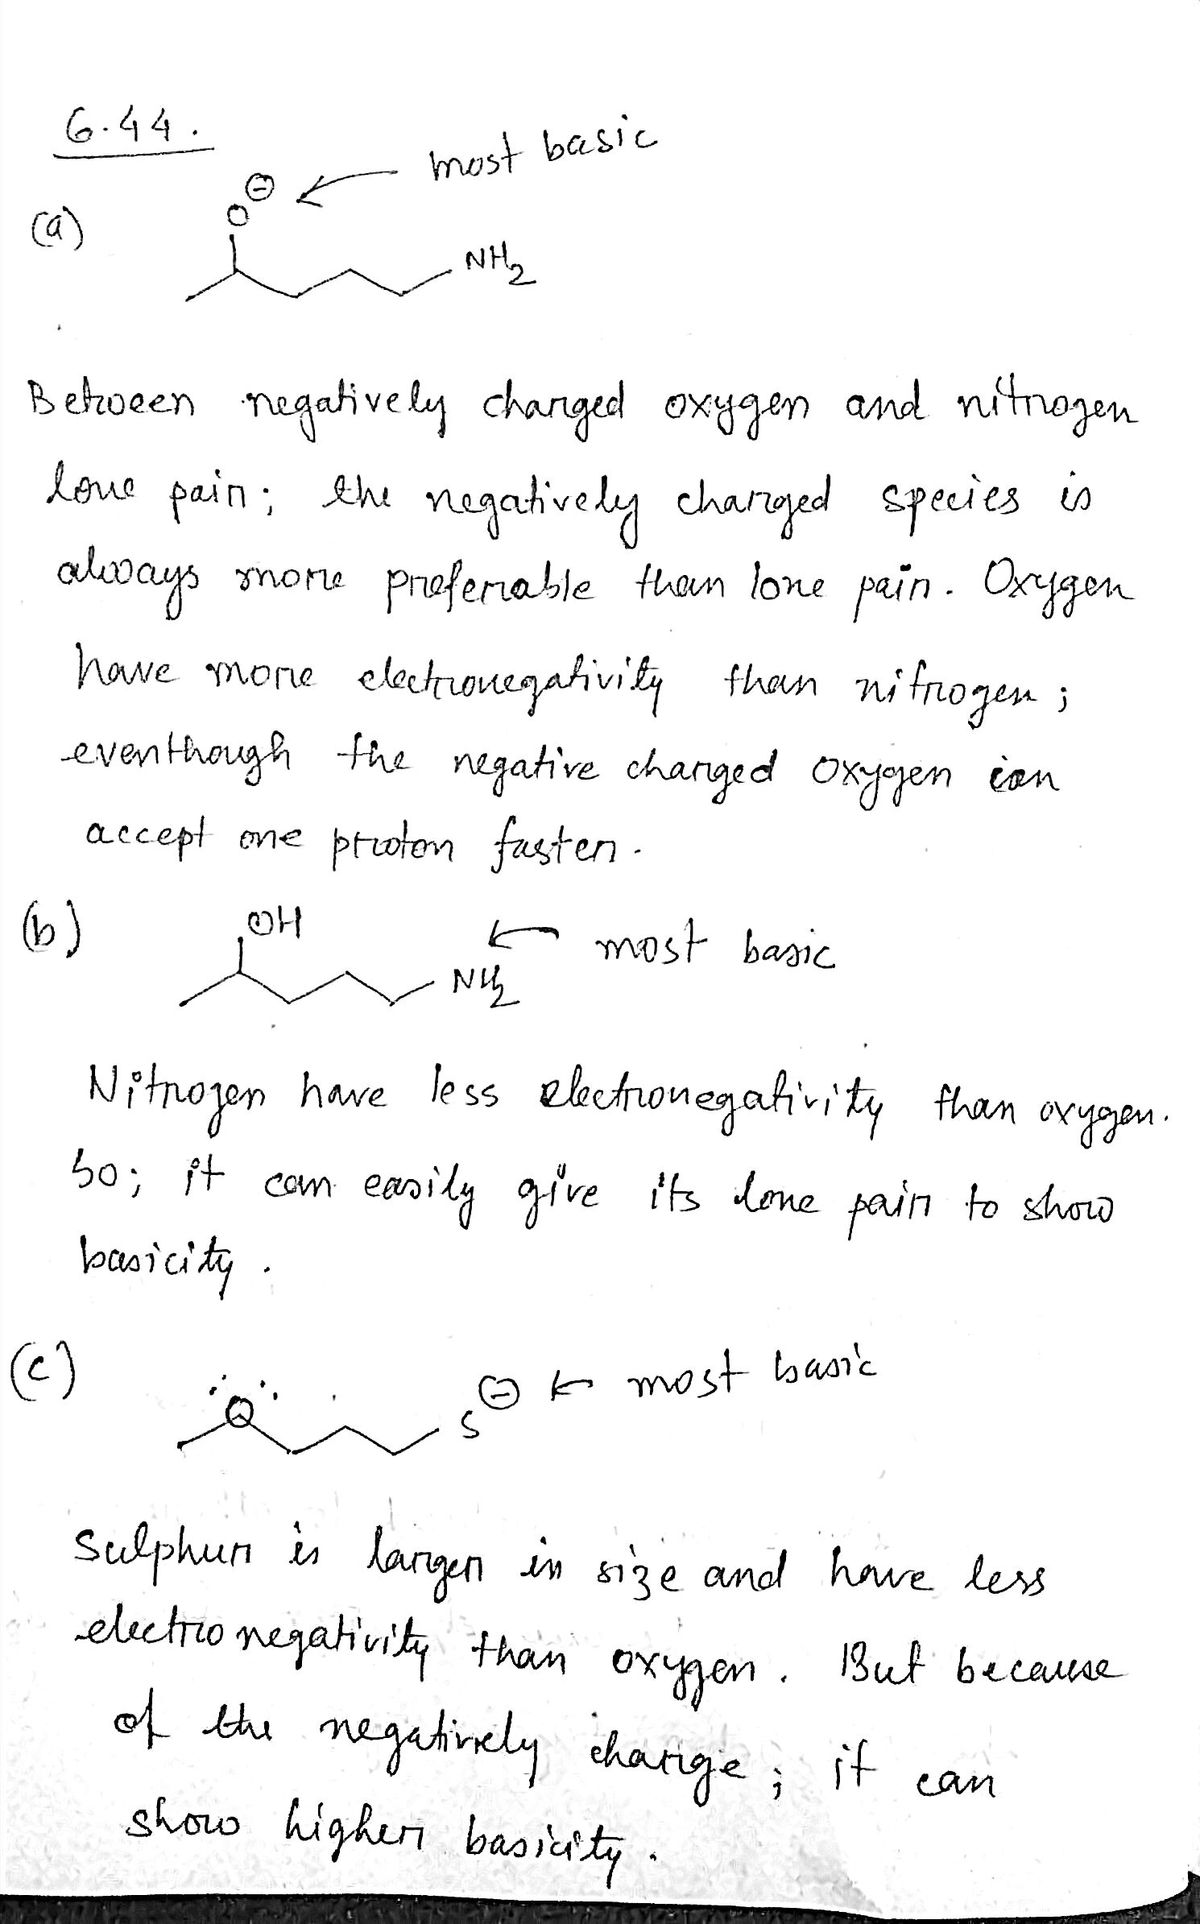 6.44.
most basic
(a)
O⊖
NH2
Between negatively charged oxygen and nitrogen
lone pair; the negatively charged species is
always more preferable than lone pair. Oxygen
have more electronegativity than nitrogen;
eventhough the negative charged oxygen can
accept one proton faster.
(b)
OH
most basic
NH2
Nitrogen have less electronegativity than oxygen.
so; it can easily give its lone pair to show
basicity.
(c)
O
S⊖
most basic
Sulphur is larger in size and have less
electronegativity than oxygen. But because
of the negatively charge; it can
show higher basicity.